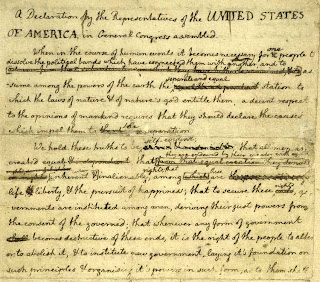 A Declaration by the Representatives of the UNITED STATES
OF AMERICA, in General Congress assembled.
When in the course of human events it becomes necessary for one people to
dissolve the political bands which have connected them with another, and to
assume among the powers of the earth the separate and equal station to
which the laws of nature & of nature's god entitle them, a decent respect
to the opinions of mankind requires that they should declare the causes
which impel them to the separation.
We hold these truths to be self-evident; that all men are
created equal that they are endowed by their creator with
rights; that among these are
life liberty, & the pursuit of happiness; that to secure these rights, go
vernments are instituted among men, deriving their just powers from
the consent of the governed; that whenever any form of government
becomes destructive of these ends, it is the right of the people to alter
or to abolish it, & to institute new government, laying it's foundation on
such principles & organising it's powers in such form, as to them sh